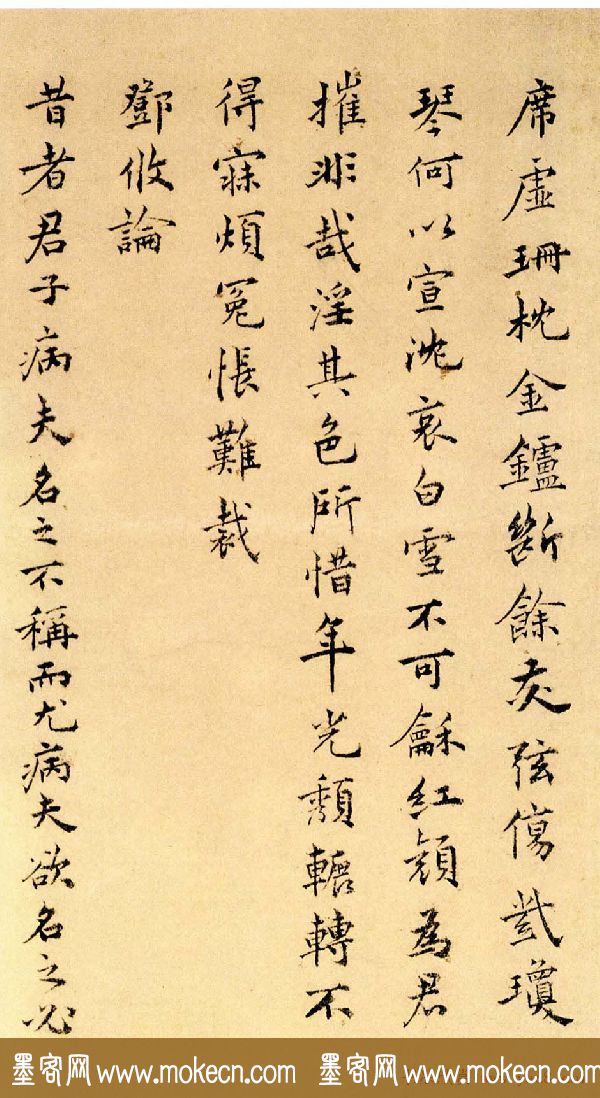 席虛珊枕金鑪斷餘灰弦傷瓊
琴何以宣沈哀白雪不可龢紅顏為君
摧非哉淫其色所惜年光頹轉不
得寐煩冤悵難裁
鄧攸論
昔者君子病夫名之不稱而尤病夫欲名之必
墨客网 www.mokecn.com 墨客网 www.mokecn.com